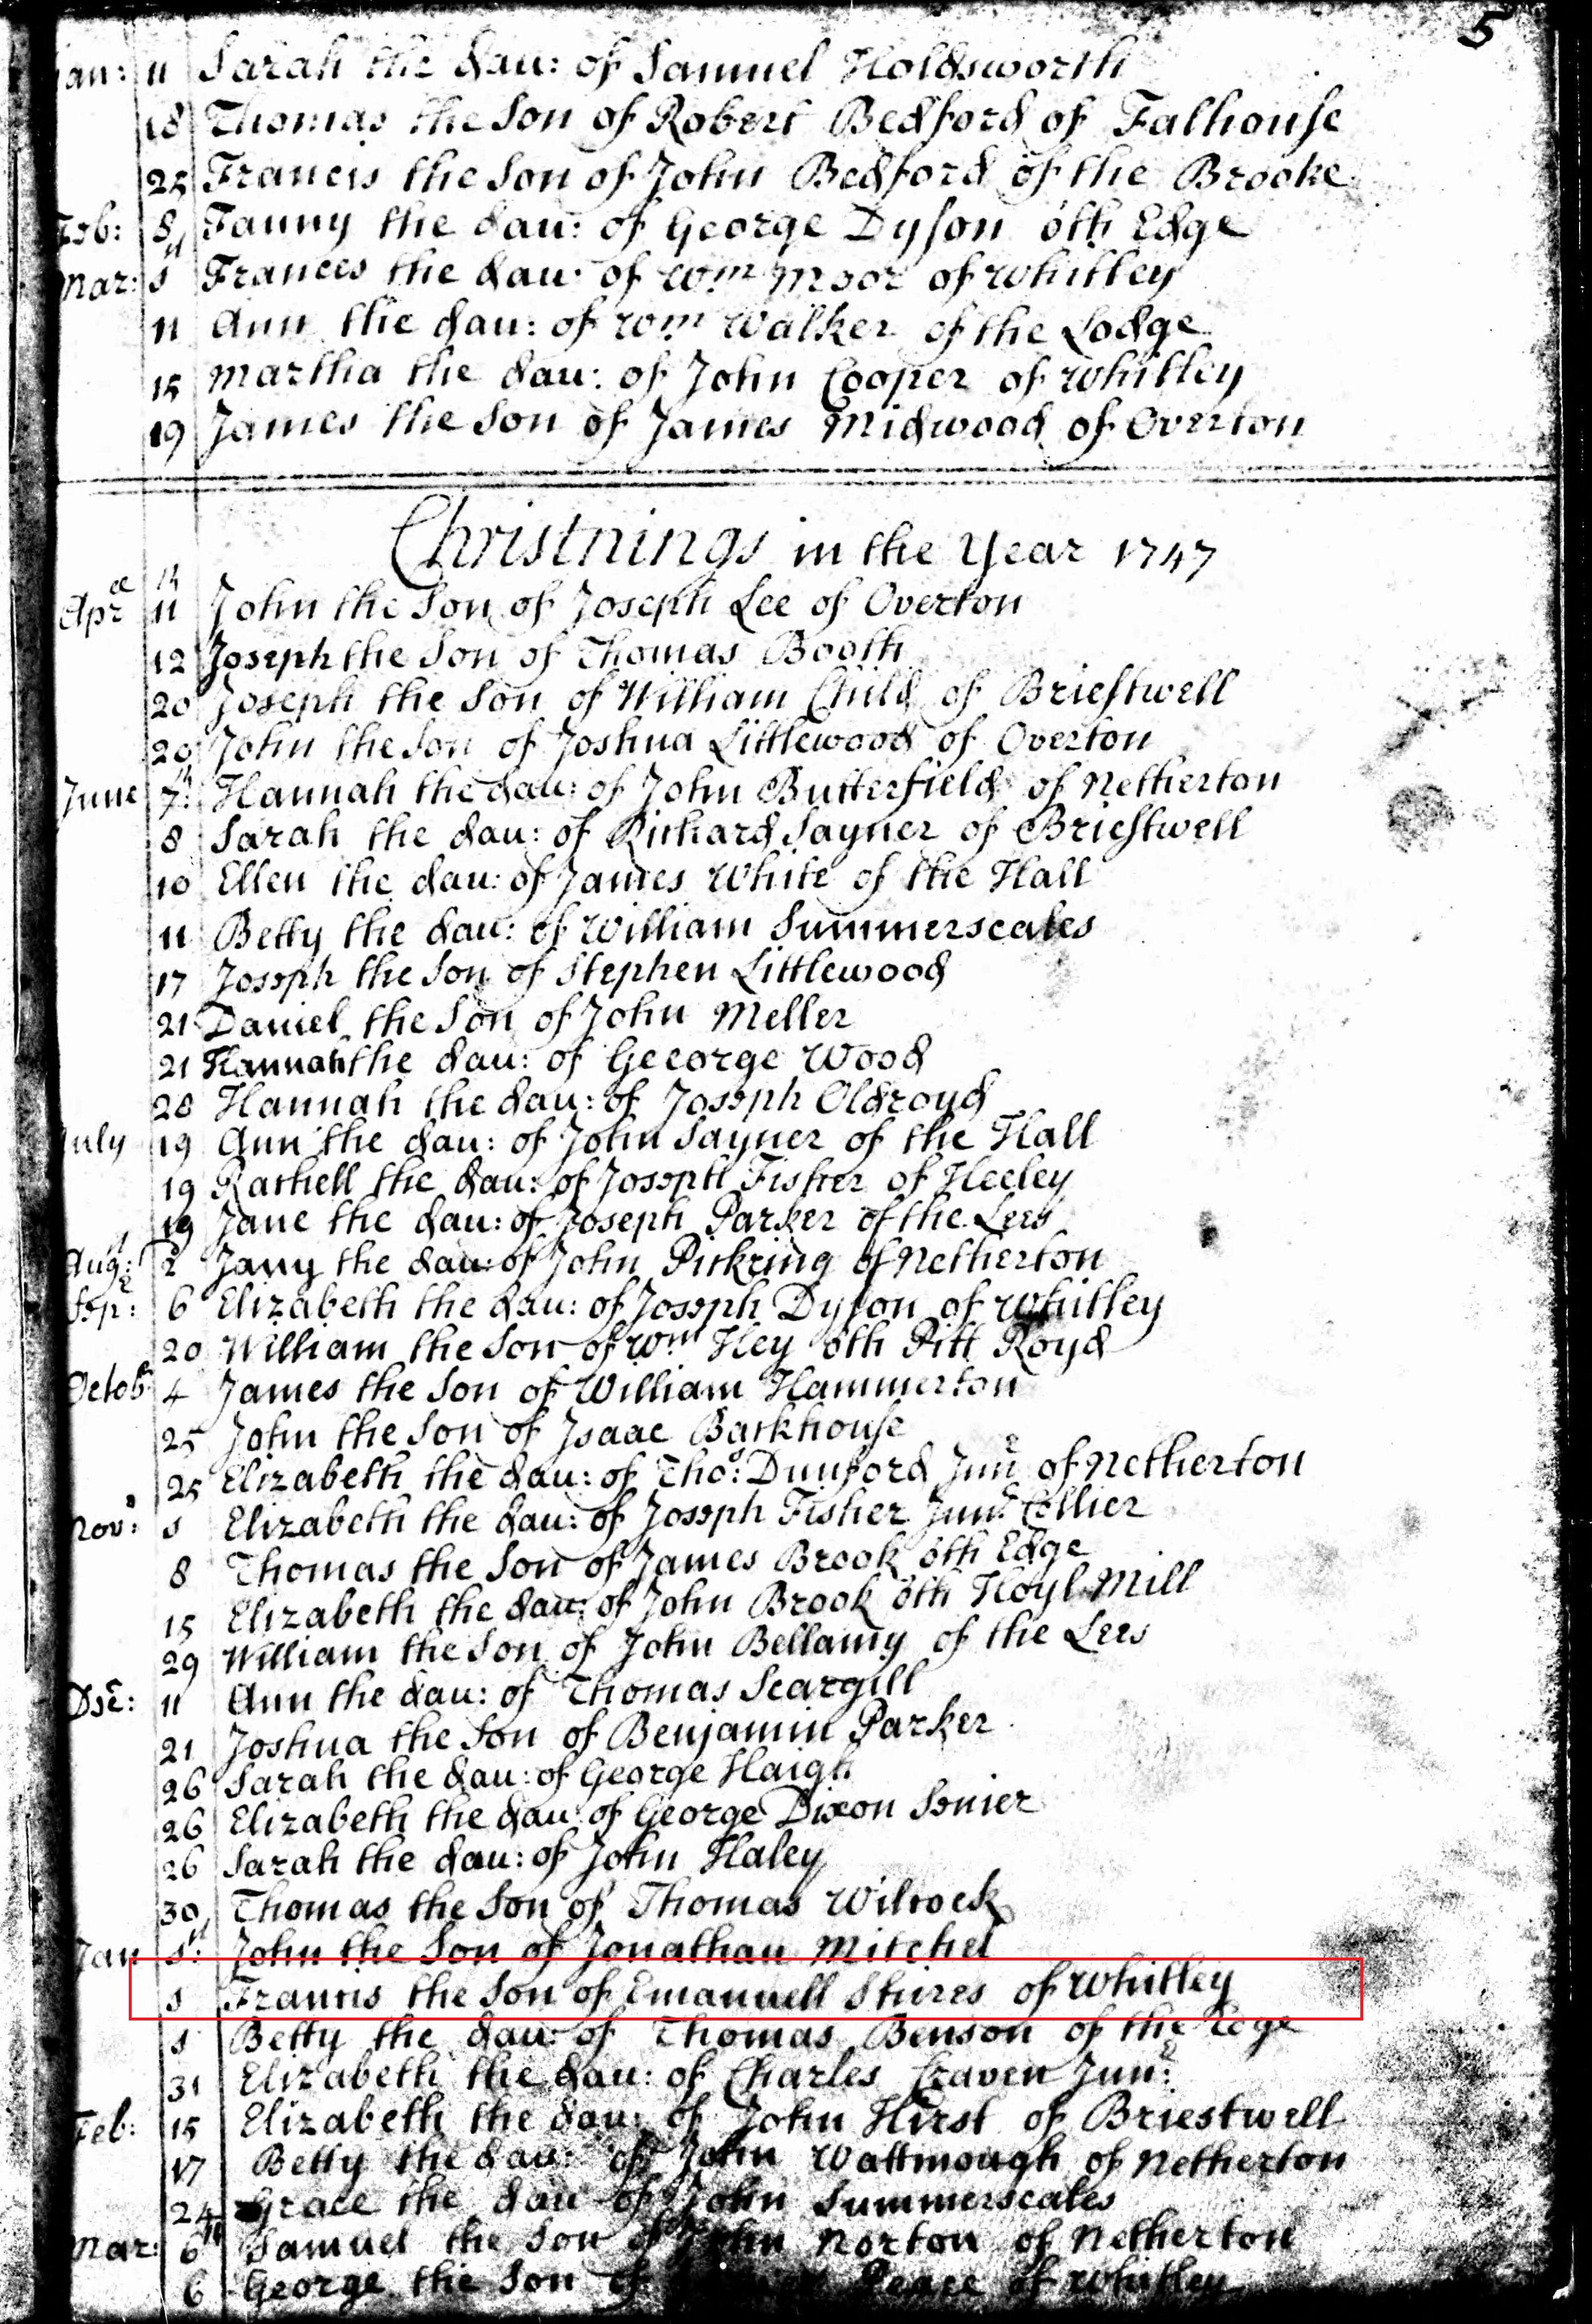 5
Jan: 11 Sarah the dau: of Samuel Holdsworth
18 Thomas the Son of Robert Bedford of Falhouse
25 Francis the Son of John Bedford of the Brooke
Feb: 8 Fanny the dau: of George Dyson oth Edge
Mar: 1 Frances the dau: of Wm Moor of Whitley
11 Ann the dau: of Wm Walker of the Lodge
15 Martha the dau: of John Cooper of Whitley
19 James the Son of James Midwood of Overton
Christnings in the Year 1747
Aprll 11th John the Son of Joseph Lee of Overton
12 Joseph the Son of Thomas Booth
20 Joseph the Son of William Child of Briestwell
20 John the Son of Joshua Littlewood of Overton
June 7th: Hannah the dau: of John Butterfield of Netherton
8 Sarah the dau: of Richard Sayner of Briestwell
10 Ellen the dau: of James White of the Hall
11 Betty the dau: of William Summerscales
17 Joseph the Son of Stephen Littlewood
21 Daniel the Son of John Meller
21 Hannah the dau: of Geeorge Wood
28 Hannah the dau: of Joseph Oldroyd
July 19 Ann the dau: of John Sayner of the Hall
19 Rachell the dau: of Joseph Fisher of Heeley
19 Jane the dau: of Joseph Parker of the Lees
Aug: 2 Jany the dau: of John Pickring of Netherton
Sep: 6 Elizabeth the dau: of Joseph Dyson of Whitley
20 William the Son of Wm Hey oth Pitt Royd
Octobr 4 James the Son of William Hammerton
25 John the Son of Isaac Backhouse
25 Elizabeth the dau: of Tho: Dunford Junr of Netherton
Nov: 1 Elizabeth the dau: of Joseph Fisher Junr Collier
8 Thomas the Son of James Brook oth Edge
15 Elizabeth the dau: of John Brook oth Hoyl Mill
29 William the Son of John Bellamy of the Lees
Dec: 11 Ann the dau: of Thomas Scargill
21 Joshua the Son of Benjamin Parker
26 Sarah the dau: of George Haigh
26 Elizabeth the dau: of George Dixon Senier
26 Sarah the dau: of John Haley
30 Thomas the Son of Thomas Wilcock
Jan 1st: John the Son of Jonathan Mitchel
1 Francis the Son of Emanuell Shires of Whitley
1 Betty the dau: of Thomas Benson of the Edge
31 Elizabeth the dau: of Charles Craven Junr:
Feb: 15 Elizabeth the dau: of John Hirst of Briestwell
17 Betty the dau: of John Wattmough of Netherton
24 Grace the dau of John Summerscales
Mar: 6th Samuel the Son of John Norton of Netherton
6 George the Son of Peace of Whitley